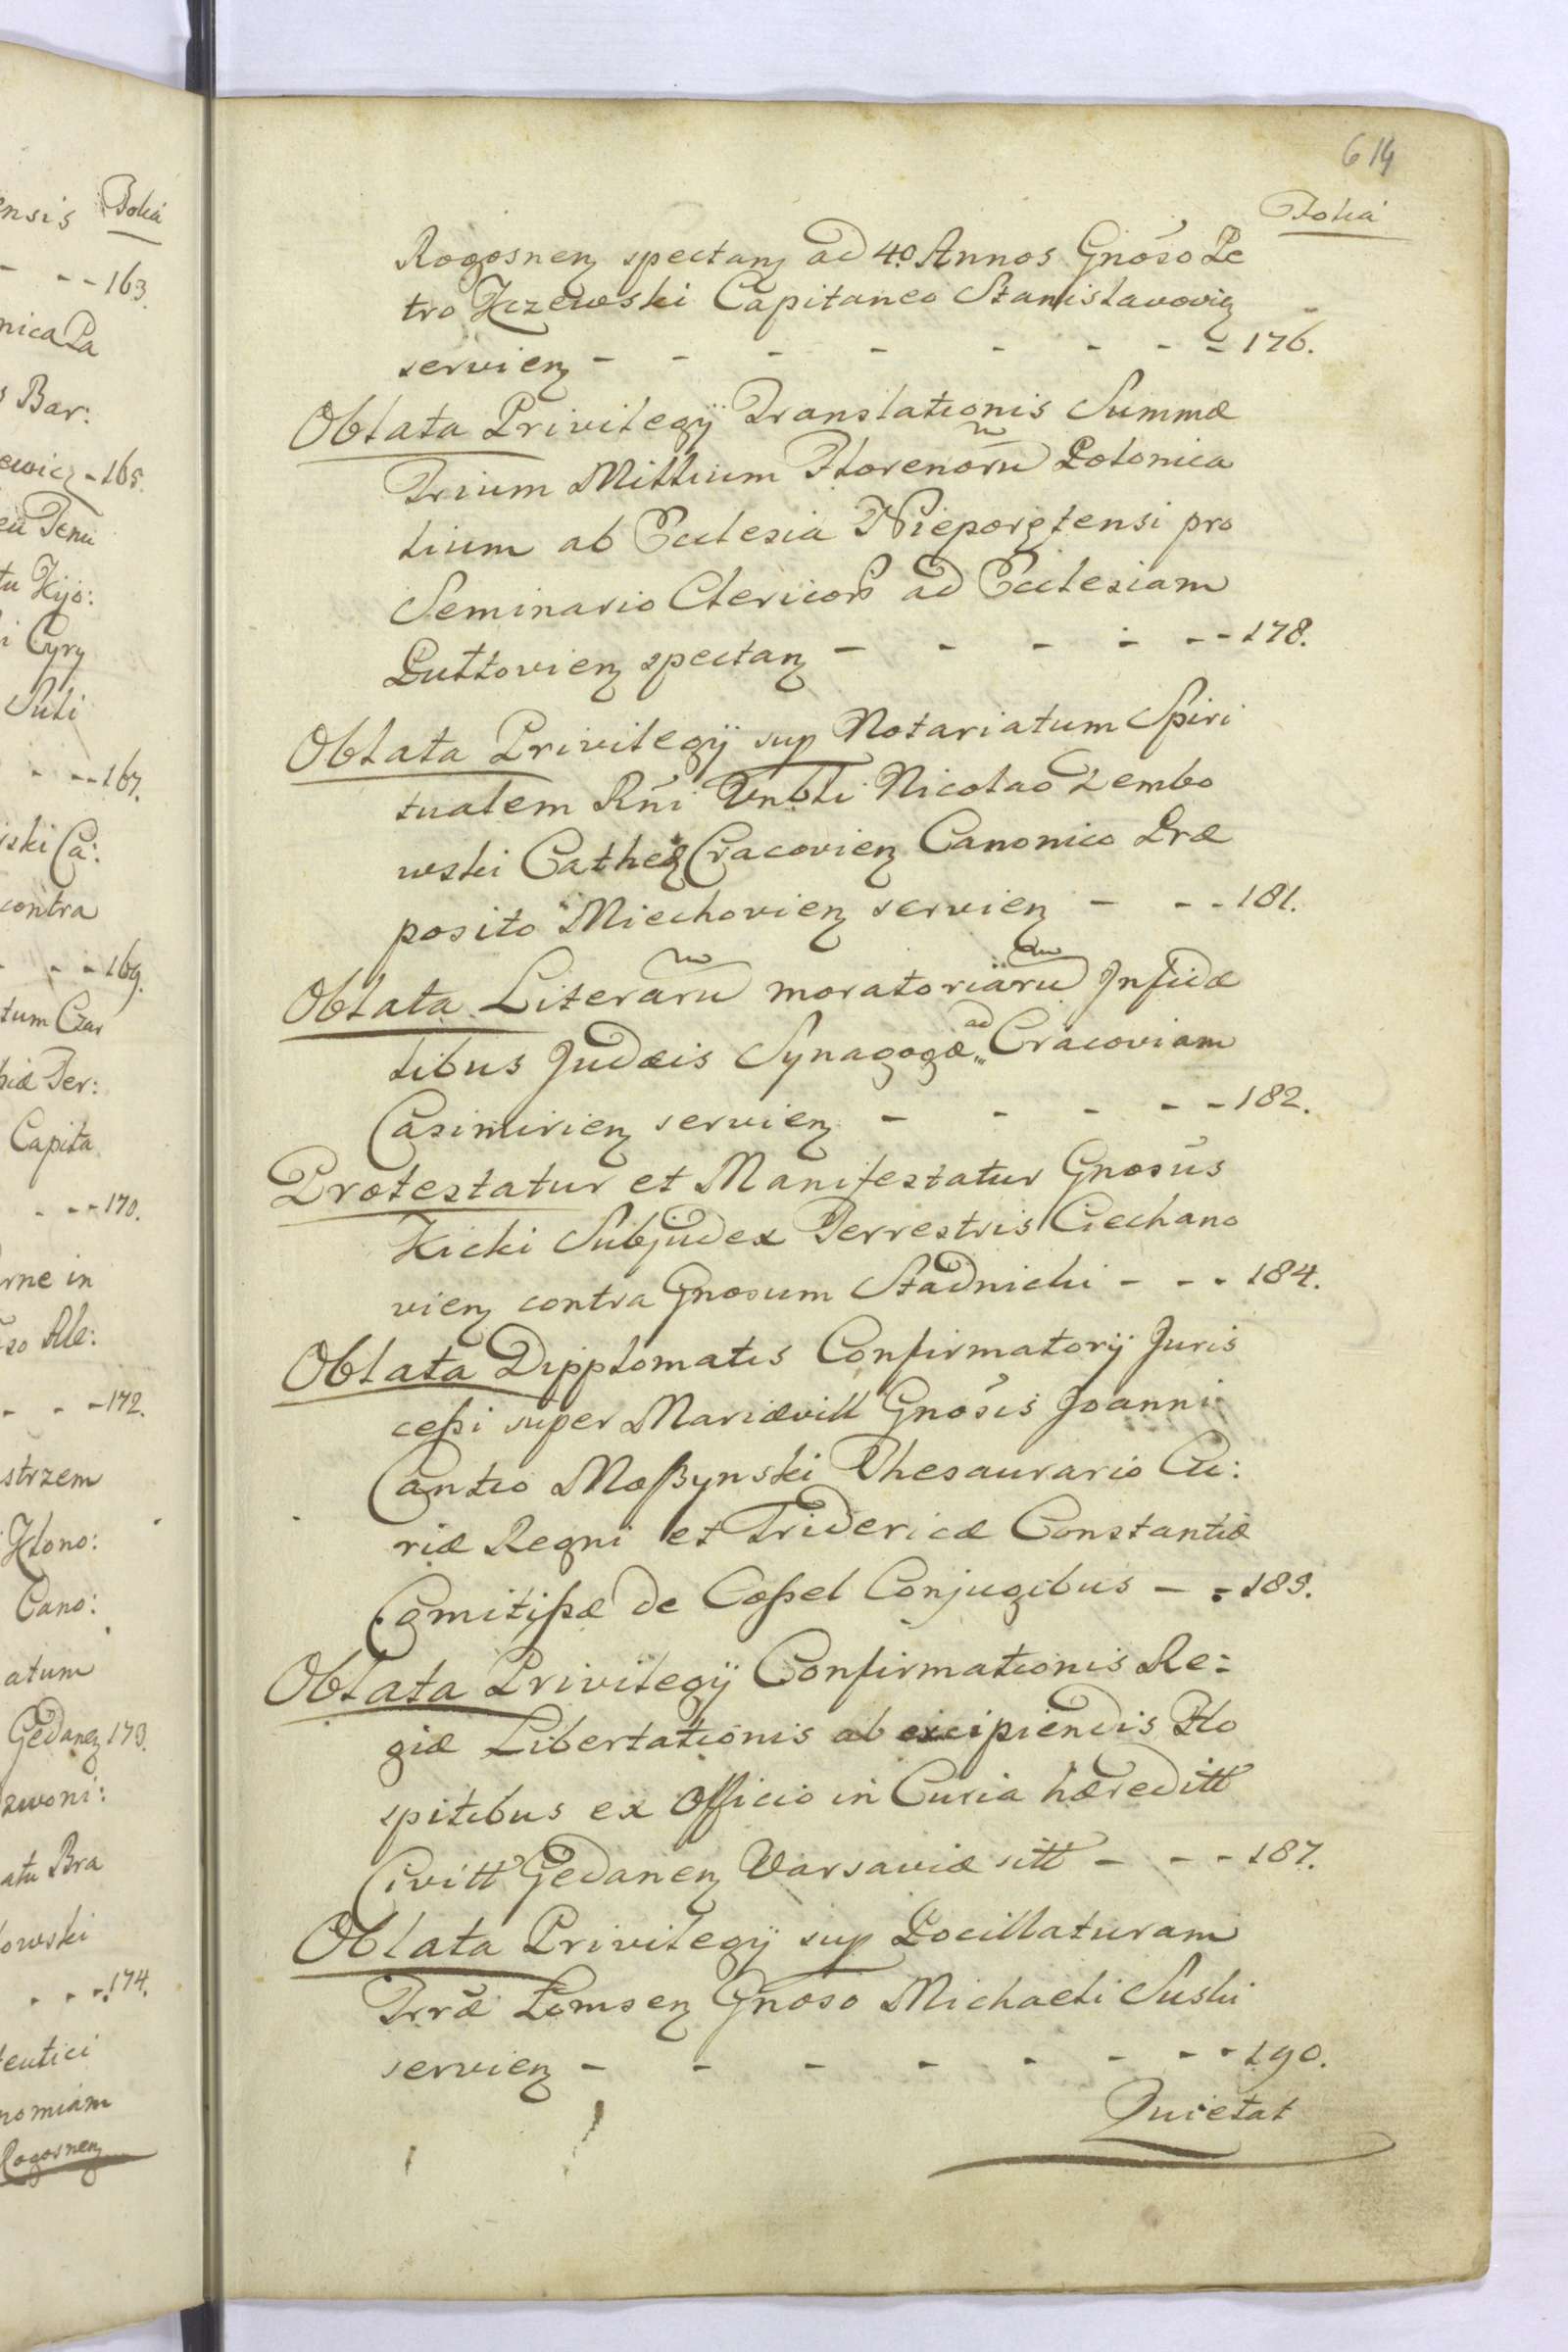 ensis Folia
- - - 163.
nica Pa
s Bar:
ewicz - 165.
eu Tenu
tu Kijo:
i Cyry
Suli
- - - 167.
rski Ca:
contra
- - - 169.
tum Czar
Ter:
Capita
- - - 170.
rne in
so Ale:
- - - 172.
strzem
Klono:
Cano:
atum
Gedanen 173.
zwoni:
atu Bra
owski
- - - 174.
teutici
nomiam
Rogosnen
614
Folia
Rogosnen spectan ad 40 Annos Gnoso Pe
tro Kczewski Capitaneo Stanislavovien
servien - - - - - - - - 176.
Oblata Privilegÿ Translationis Summæ
Trium Millium Florenorũ Polonica
lium ab Ecclesia Nieporętensi pro
Seminario Clericor ad Ecclesiam
Pułtovien spectan - - - - - - 178.
Oblata Privilegÿ sup Notariatum Spiri
tualem Rńi Vnbli Nicolao Zembo
wski Cathed Cracovien Canonico Præ
posito Miechovien servien - - - 181.
Oblata Literarũ moratoriarũ Infide
libus Judæis Synagogæ ad Cracoviam
Casimirien servien - - - - - 182.
Protestatur et Manifestatur Gnosús
Kicki Subjudex Terrestris Ciechano
vien contra Gnosum Stadnicki - - - 184.
Oblata Dipplomatis Confirmatorÿ Juris
ceßi super Mariævill Gnosis Joanni
Cantio Moßynski Thesaurario Cu:
riæ Regni et Friderica Constantiæ
Comitißæ de Coßel Conjugibus - - 185.
Oblata Privilegÿ Confirmationis Re:
giæ Libertationis ab excipiendis Ho
spitibus ex Officio in Curia hæreditt
Civitt Gedanen Varsaviæ sitt - - - 187.
Oblata Privilegÿ sup Pocillaturam
Trræ Lomsen Gnoso Michaeli Suski
servien - - - - - - - - 190.
Quietat